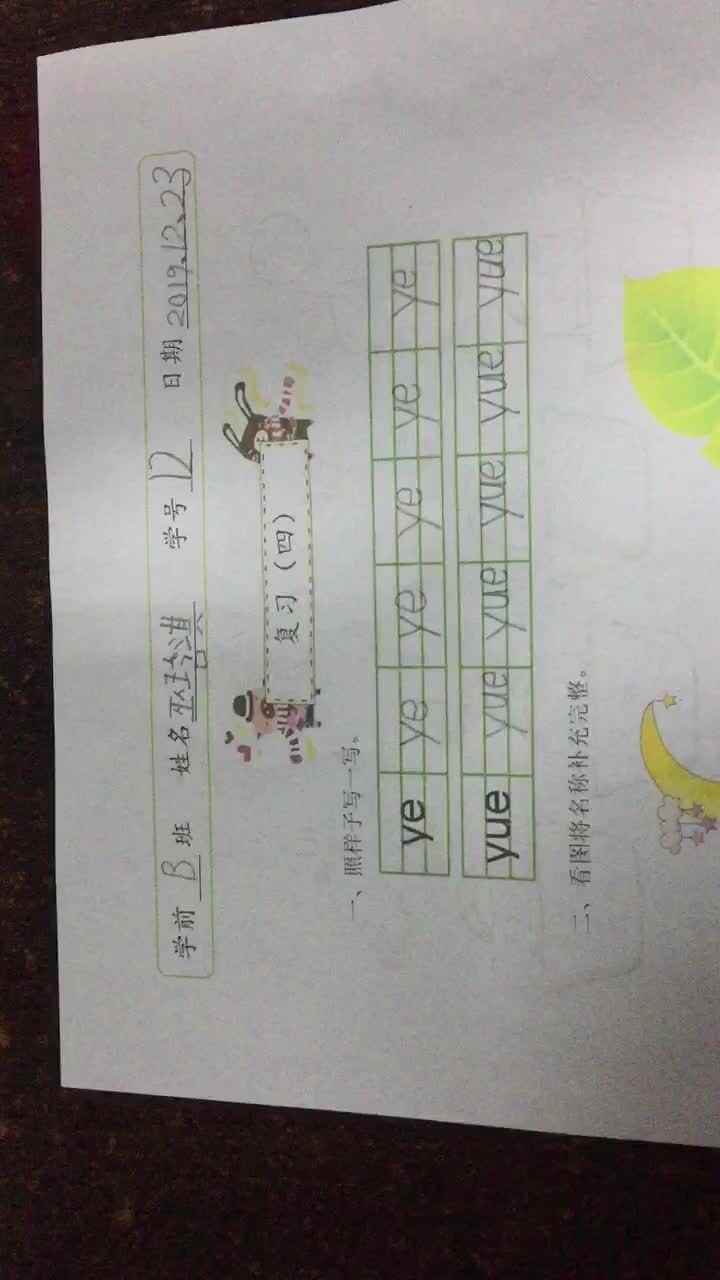 学前 B 班 姓名 学号 12 日期 2019.12.23
复习（四）
一、照样子写一写。
ye ye ye ye ye ye
yue yue yue yue yue yue
二、看图将名称补充完整。